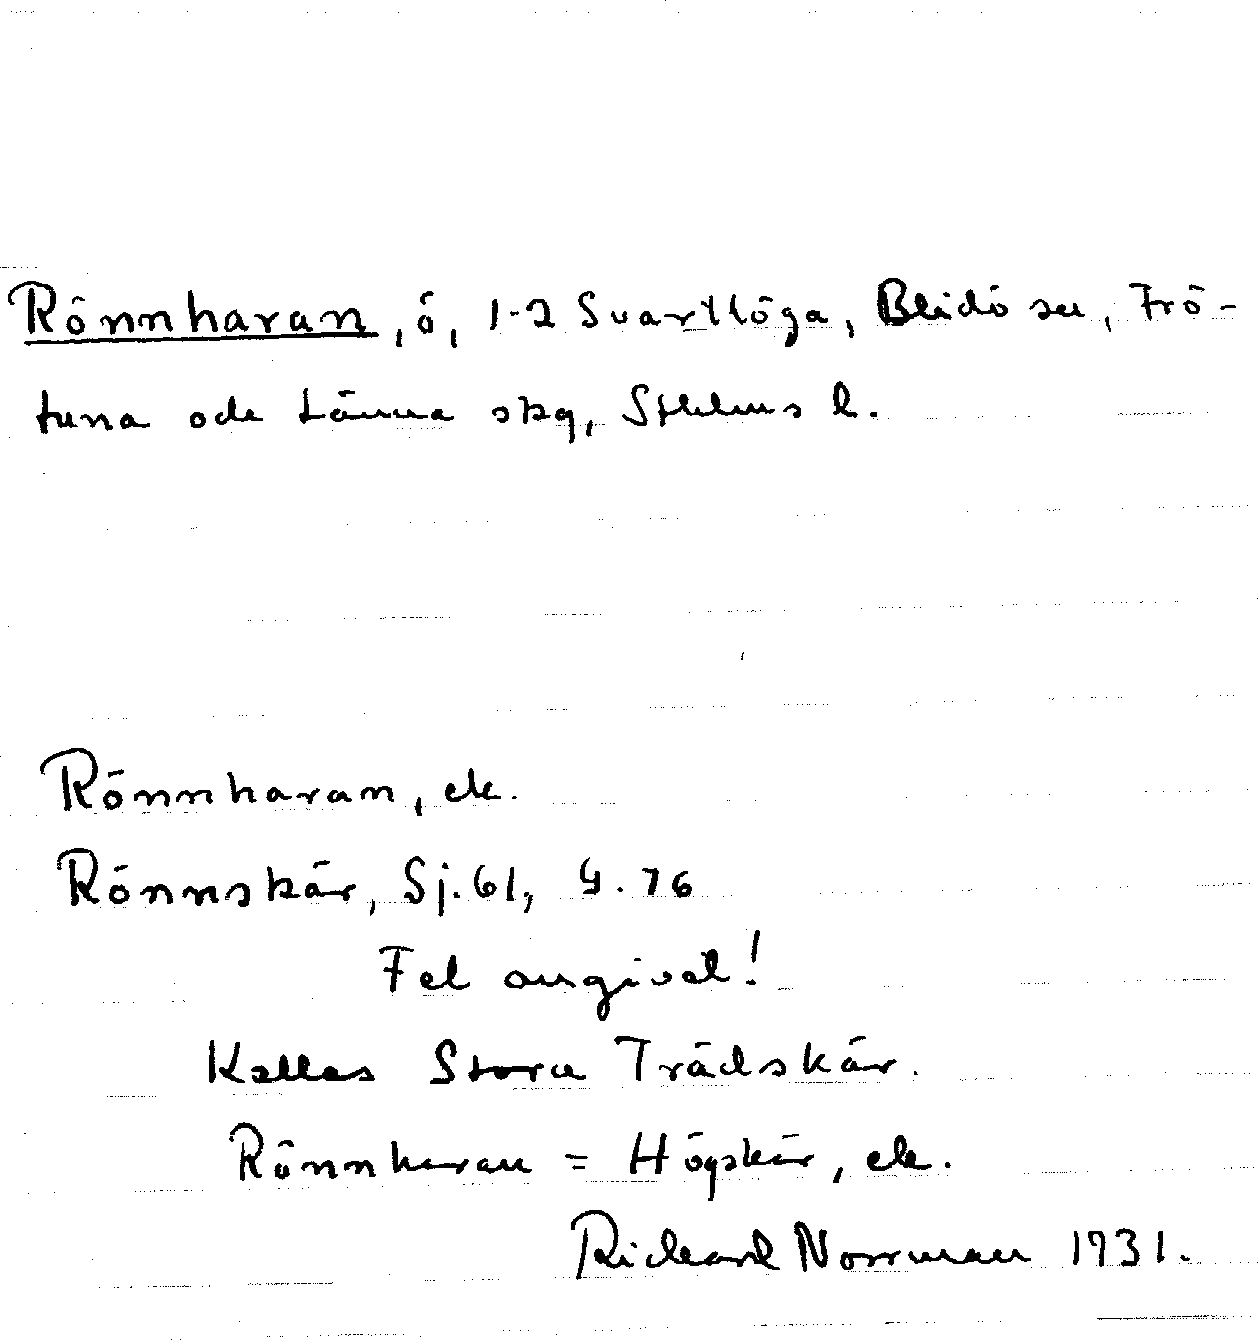 Rönnharan, ö, 1-2 Svartlöga, Blidö sn, Frö-
tuna och Länna skg, Sthlms l.
Rönnharan, ek.
Rönnskär, Sj. 61, G. 76
Fel angivet!
Kallas Stora Trädskär.
Rönnharan = Högskär, ek.
Rickard Norrman 1931.